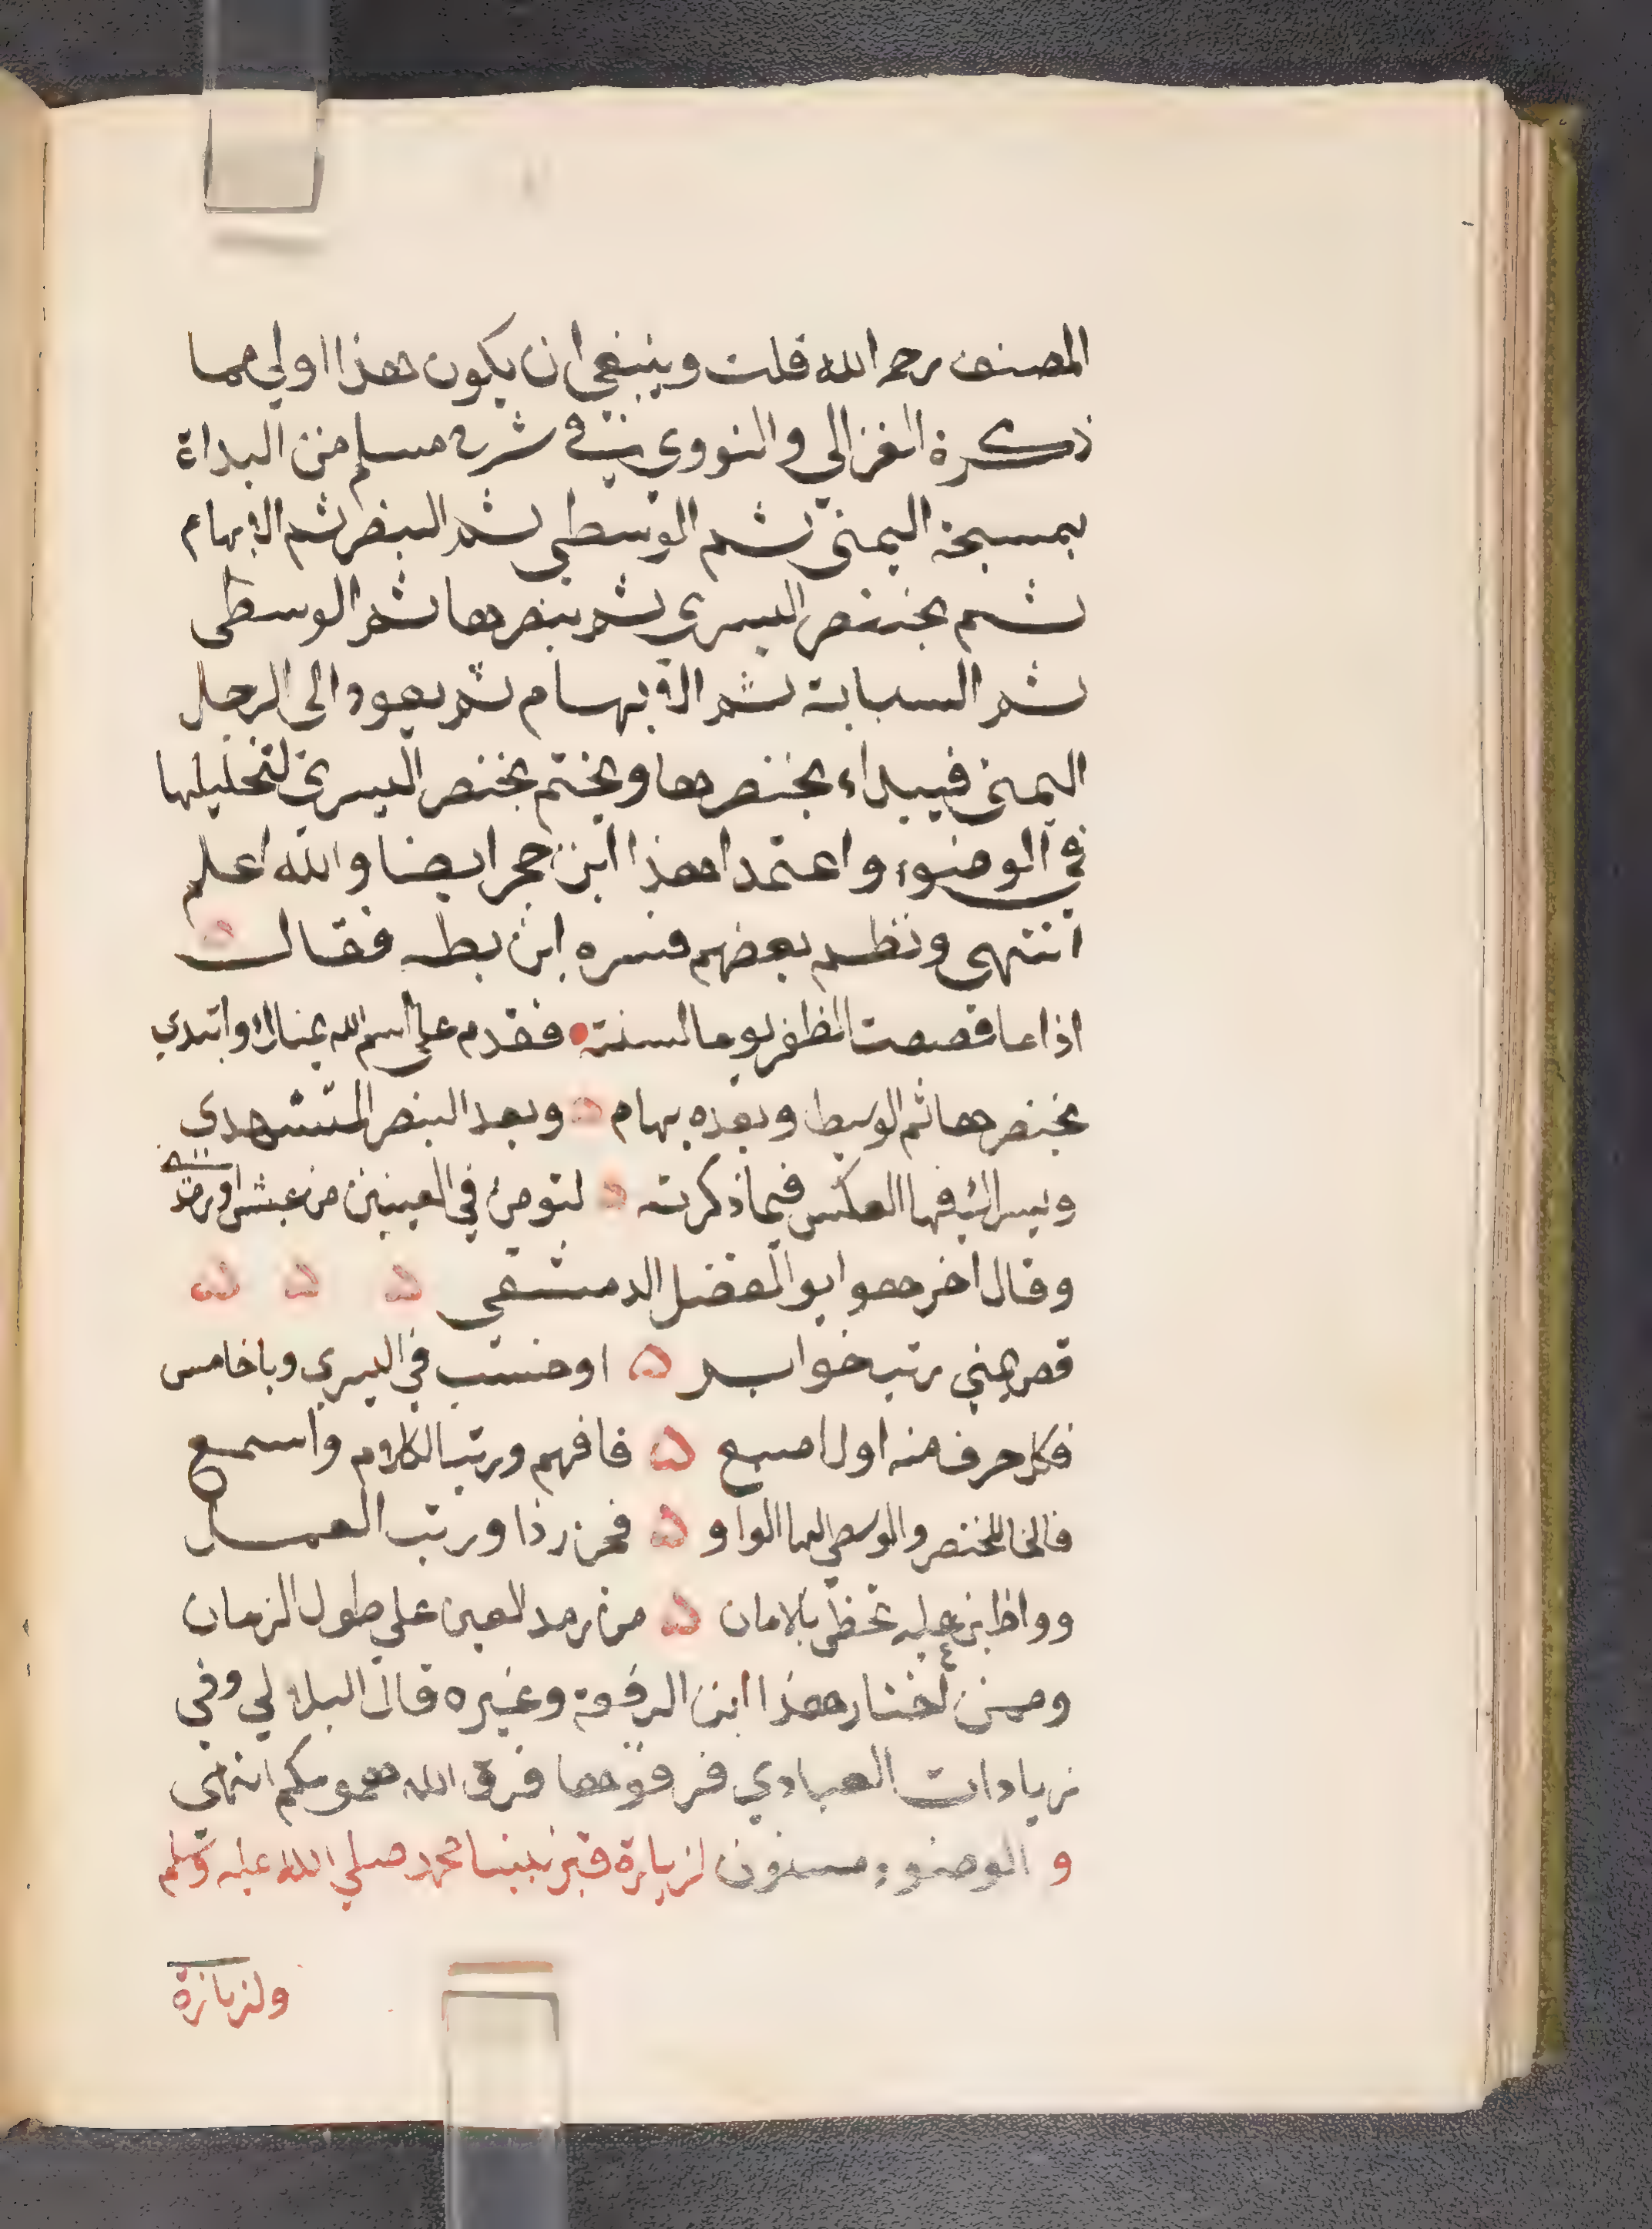 المصنف رحمه الله قلت وينبغي ان يكون هذا اولي مما
ذكره الغزالي والنووي في شرح مسلم من البداة
بمسبحة اليمنى ثم الوسطي ثم البنصر ثم الابهام
ثم بخنصر اليسرى ثم ببنصرها ثم الوسطى
ثم السبابة ثم الابهام ثم يعود الى الرجل
اليمنى فيبداء بخنصرها ويختم بخنصر اليسرى لتخليلها
في الوضوء واعتمد هذا ابن حجر ايضا والله اعلم
انتهى ونظم بعضهم فسره ابن بطه فقال
اذا ما قصصت الظفر يوما لسنة فقدم على اسم الله يمناك وابتدي
بخنصرها ثم الوسط وبعده بهام وبعد البنصر المتشهدي
ويسراك فيها العكس فيما ذكرته لتومن في العينين من عيش او رمد
وقال اخر هو ابو الفضل الدمشقي
قص يمني رتب خوابس اوخسب في اليسرى وبا خامس
فكل حرف منه اول اصبع فافهم ورتب الكلام واسمع
فالخا للخنصر والوسطي لها الواو فحز ذا ورتب العمل
وواظبن عليه تحظى بلامان من رمد العين علي طول الزمان
وممن اختار هذا ابن الرفعة وغيره قال البلالي وفي
زيادات العبادي فرقوها فرق الله همومكم انتهى
و الوضوء مسنون لزيارة قبر نبينا محمد صلي الله عليه وسلم
ولزيارة